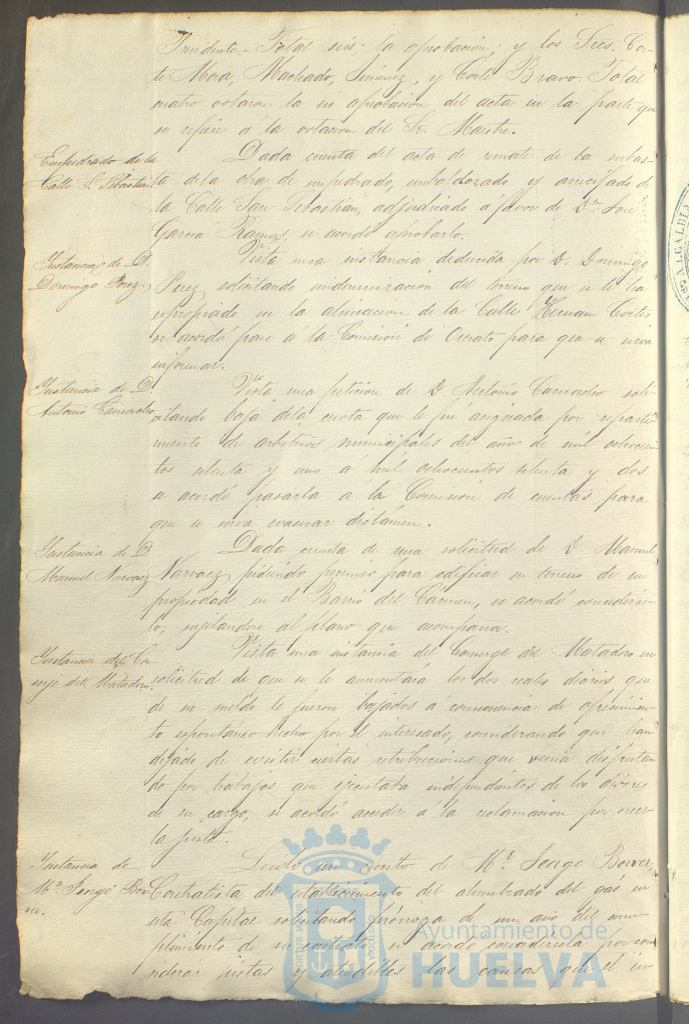 Presidente.- Total seis: la aprobacion; y los Sres. Cor-
te Mora, Machado, Jimenez, y Corte Bravo. Total
cuatro votaron la no aprobacion del acta en la parte que
se refiere a la votacion del Sr. Maestre.
Empedrado de la
Calle S. Sebastian.
Dada cuenta del acta de remate de la subas-
ta de la obra de empedrado, embaldozado y arrecifado de
la Calle San Sebastian, adjudicado a favor de Dn. José
Garcia Ramos, se acordó aprobarlo.
Instancia de D.
Domingo Perez.
Vista una instancia deducida por D. Domingo
Perez solicitando indemnizacion del terreno que se le ha
expropiado en la alineacion de la Calle Hernan Cortés
se acordó pase á la Comision de Ornato para que se sirva
informar.
Instancia de D.
Antonio Camacho
Vista una peticion de D. Antonio Camacho soli-
citando baja de la cuota que le fue asignada por reparti-
miento de arbitrios municipales del año de mil ochocien-
tos setenta y uno á mil ochocientos setenta y dos
se acordó pasarla á la Comision de cuentas para
que se sirva evacuar dictámen.
Instancia de D.
Manuel Narvaez
Dada cuenta de una solicitud de D. Manuel
Narvaez, pidiendo permiso para edificar en terreno de su
propiedad en el Barrio del Cármen, se acordó concedérse-
lo, sugetándose al plano que acompaña.
Instancia del Con-
serje del Matadero.
Vista una instancia del Conserge del Matadero en
solicitud de que se le aumentará los dos reales diarios que
de su sueldo le fueron bajados á consecuencia de ofrecimien-
to espontáneo hecho por el interesado, considerando que han
dejado de existir ciertas retribuciones que venia disfrutan-
do por trabajos que ejecutaba independientes de los deberes
de su cargo, se acordó acceder a la reclamacion por creer-
la justa.
Instancia de
Mr. Jorge Bow-
er.
Leido un escrito de Mr. Jorge Bower,
Contratista del establecimiento del alumbrado del gas, en
esta Capital solicitando prórroga de un año del cum-
plimiento de su contrato se acordó concedérsela por con-
siderar justas y atendibles las causas que el in-
ALCALDIA
Ayuntamiento de
HUELVA